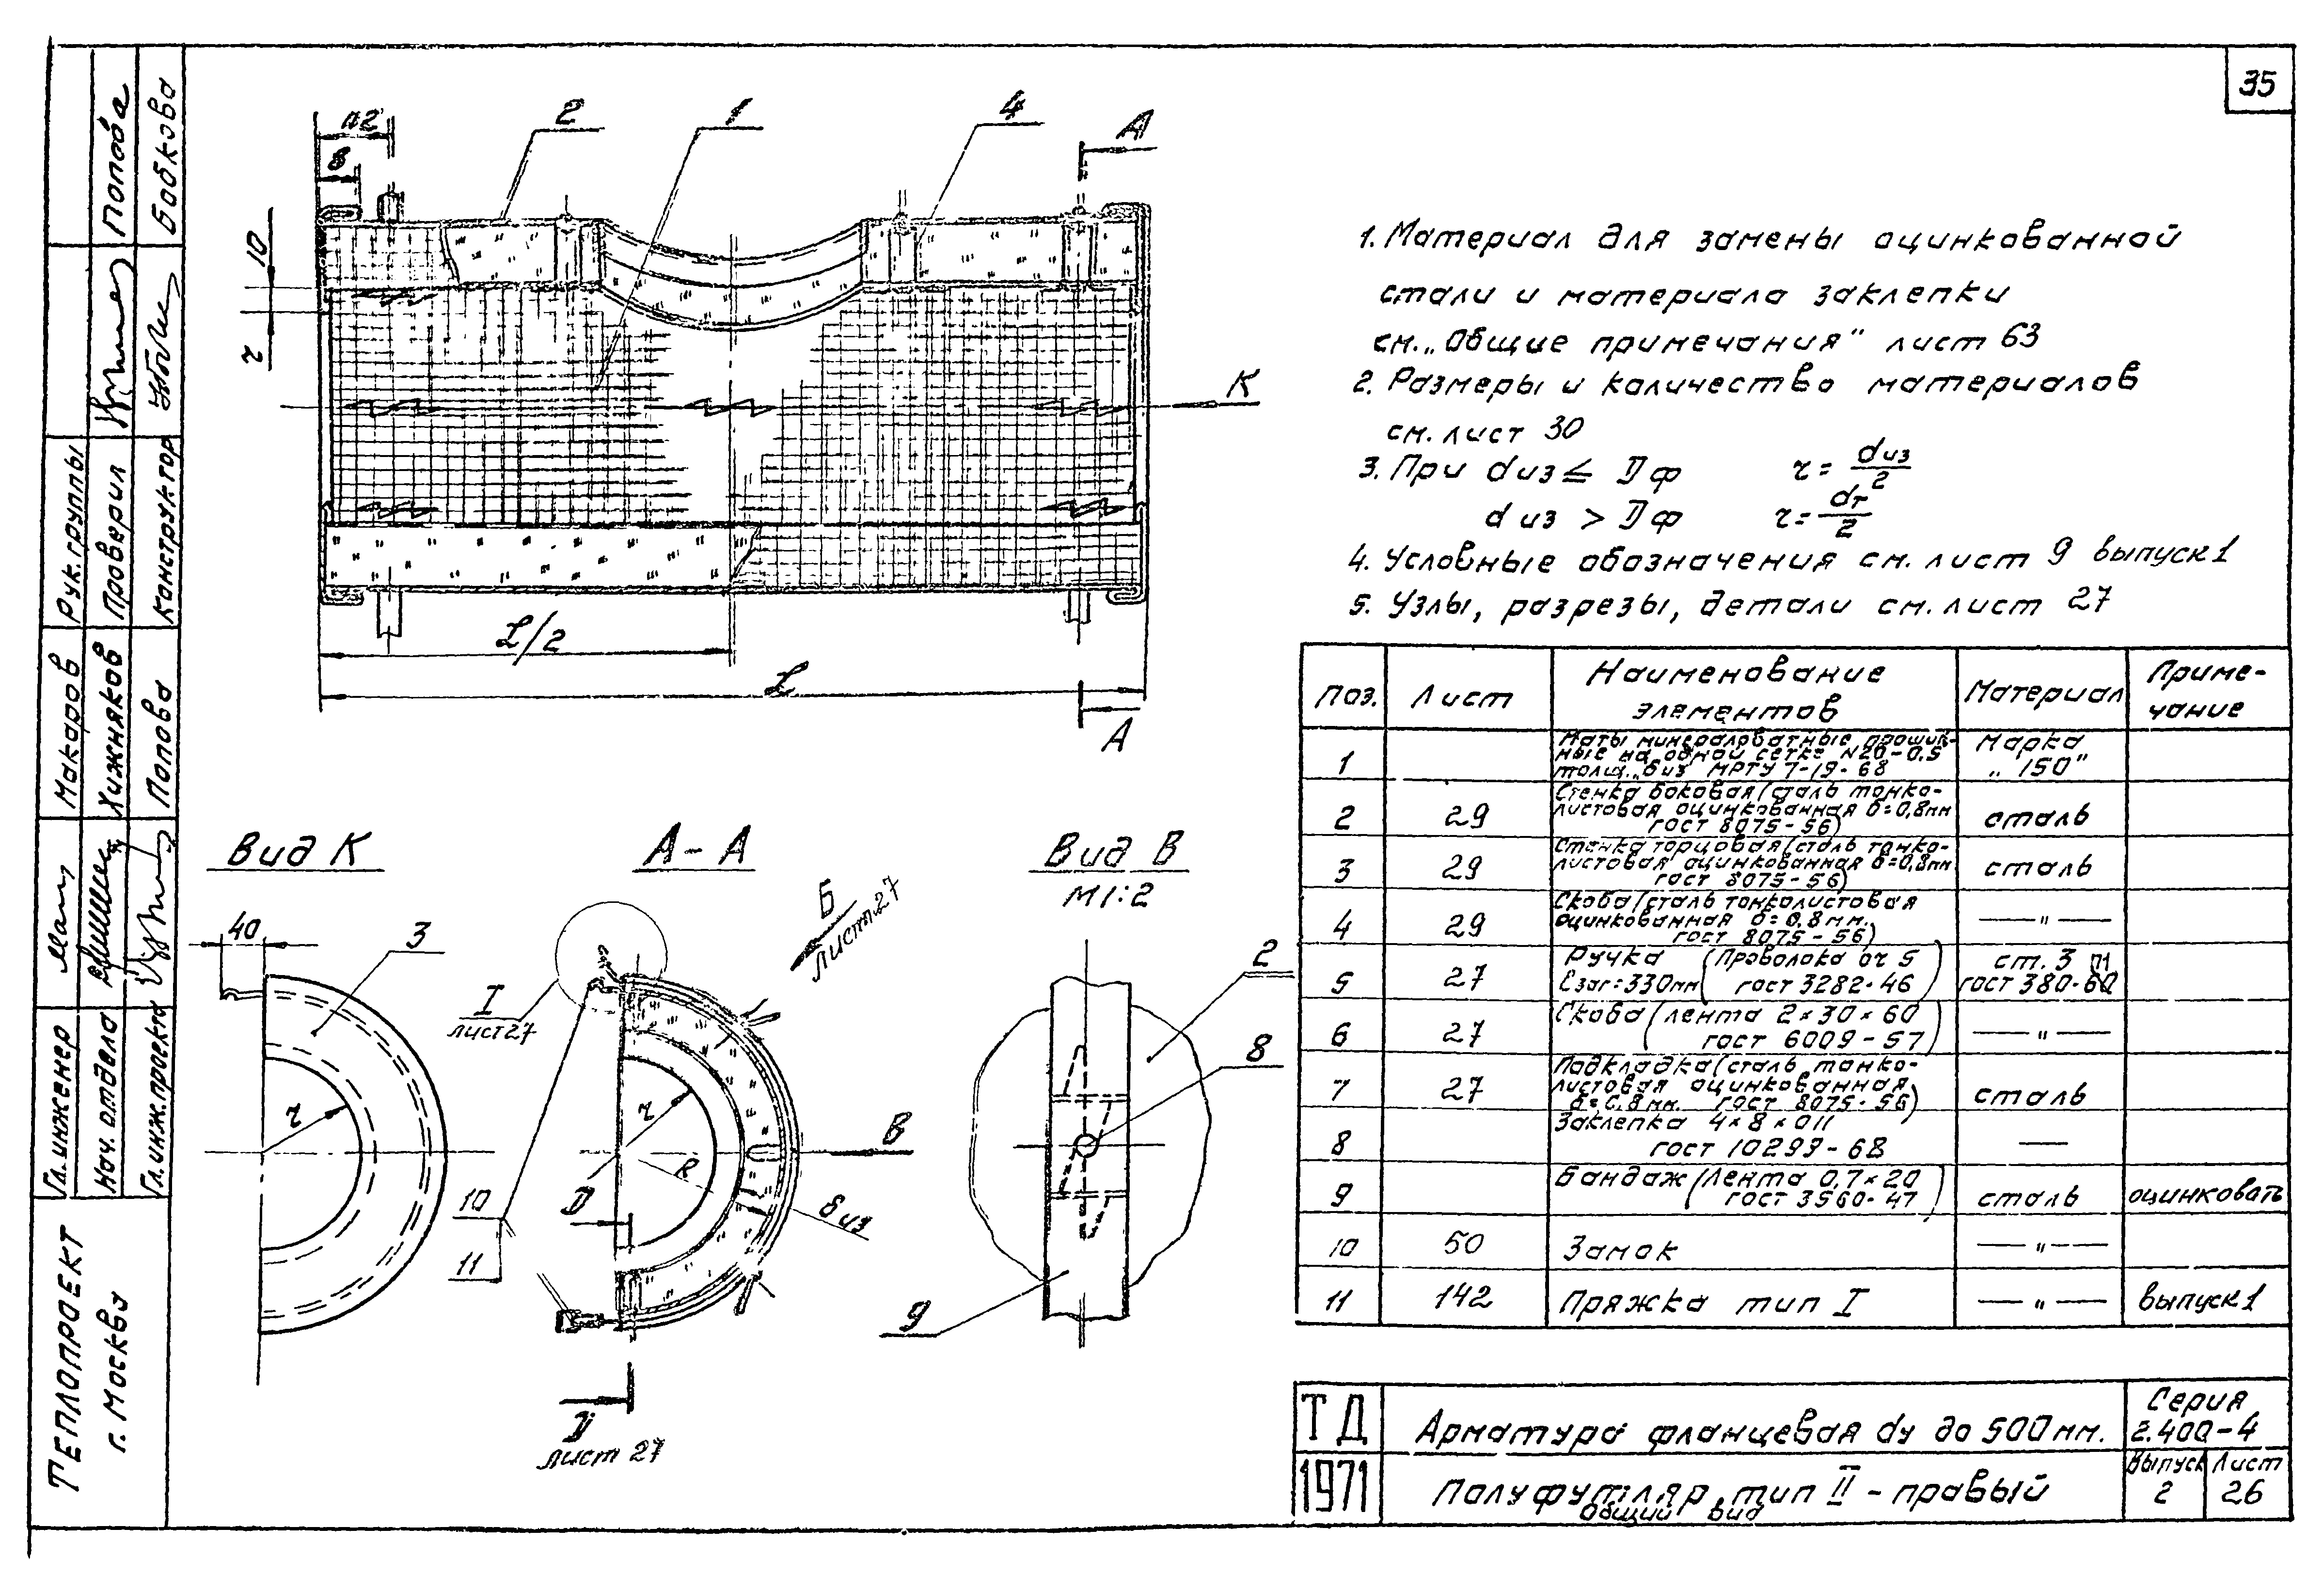 35
1. Материал для замены оцинкованной
стали и материала заклепки
см. „Общие примечания" лист 63
2. Размеры и количество материалов
см. лист 30
3. При dиз ≤ Dф r = dиз/2
dиз > Dф r = dт/2
4. Условные обозначения см. лист 9 выпуск 1
5. Узлы, разрезы, детали см. лист 27
8
10
r
2
1
4
А
К
L/2
L
А
Вид К
40
3
r
А-А
Б
лист 27
I
лист 27
r
R
В
D
10
11
δиз
D
лист 27
Вид В
М1:2
2
8
9
поз. Лист Наименование элементов Материал Приме-чание
1 Маты минераловатные прошив-
ные на одной сетке N20-0,5
толщ. „δиз" МРТУ 7-19-68 Марка „150"
2 29 Стенка боковая (сталь тонко-
листовая оцинкованная δ=0,8мм
гост 8075-56) сталь
3 29 Стенка торцовая (сталь тонко-
листовая оцинкованная δ=0,8мм
гост 8075-56) сталь
4 29 Скоба (сталь тонколистовая
оцинкованная δ=0,8мм.
гост 8075-56) — " —
5 27 Ручка (Проволока от 5
ℓзаг=330мм гост 3282-46) ст. 3
гост 380-60
6 27 Скоба (лента 2×30×60
гост 6009-57) — " —
7 27 Подкладка (сталь тонко-
листовая оцинкованная
δ=0,8мм. гост 8075-56) сталь
8 Заклепка 4×8×011
гост 10299-68 —
9 Бандаж (Лента 0,7×20
гост 3560-47) сталь оцинковать
10 50 Замок — " —
11 142 Пряжка тип I — " — выпуск 1
ТД
1971
Арматура фланцевая dу до 500мм.
Полуфутляр тип II - правый
Общий вид
Серия
2.400-4
Выпуск
2
Лист
26
Попова
Бобкова
Рук. группы
Проверил
Конструктор
Макаров
Хижняков
Попова
Гл. инженер
Нач. отдела
Гл. инж. проекта
ТЕПЛОПРОЕКТ
г. Москва